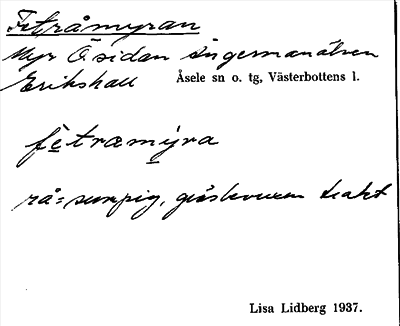 Feträmyran
Myr Ö sidan Ångermanälven
Erikshall Åsele sn o. tg, Västerbottens l.
fe̱trami̱ýra
rå = sumpig, gräsbevuxen trakt
Lisa Lidberg 1937.